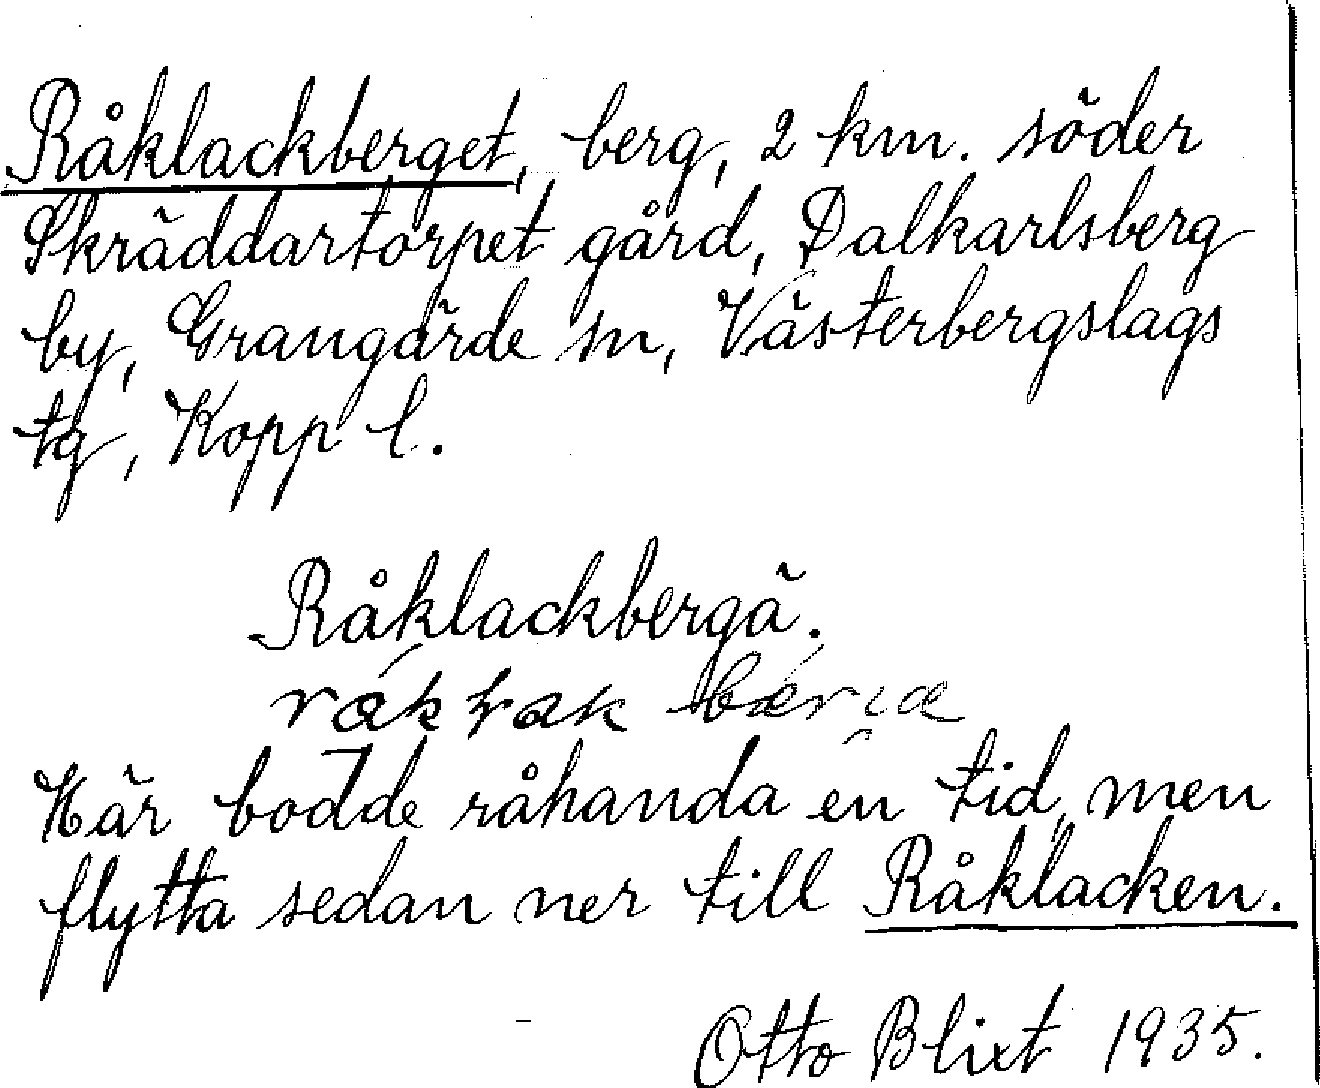 Råklackberget, berg, 2 km. söder
Skräddartorpet gård, Dalkarlsberg
by, Grangärde sn, Västerbergslags
tg, Kopp l.
Råklackbergä.
Här bodde råhanda en tid, men
flytta sedan ner till Råklacken.
Otto Blixt 1935.